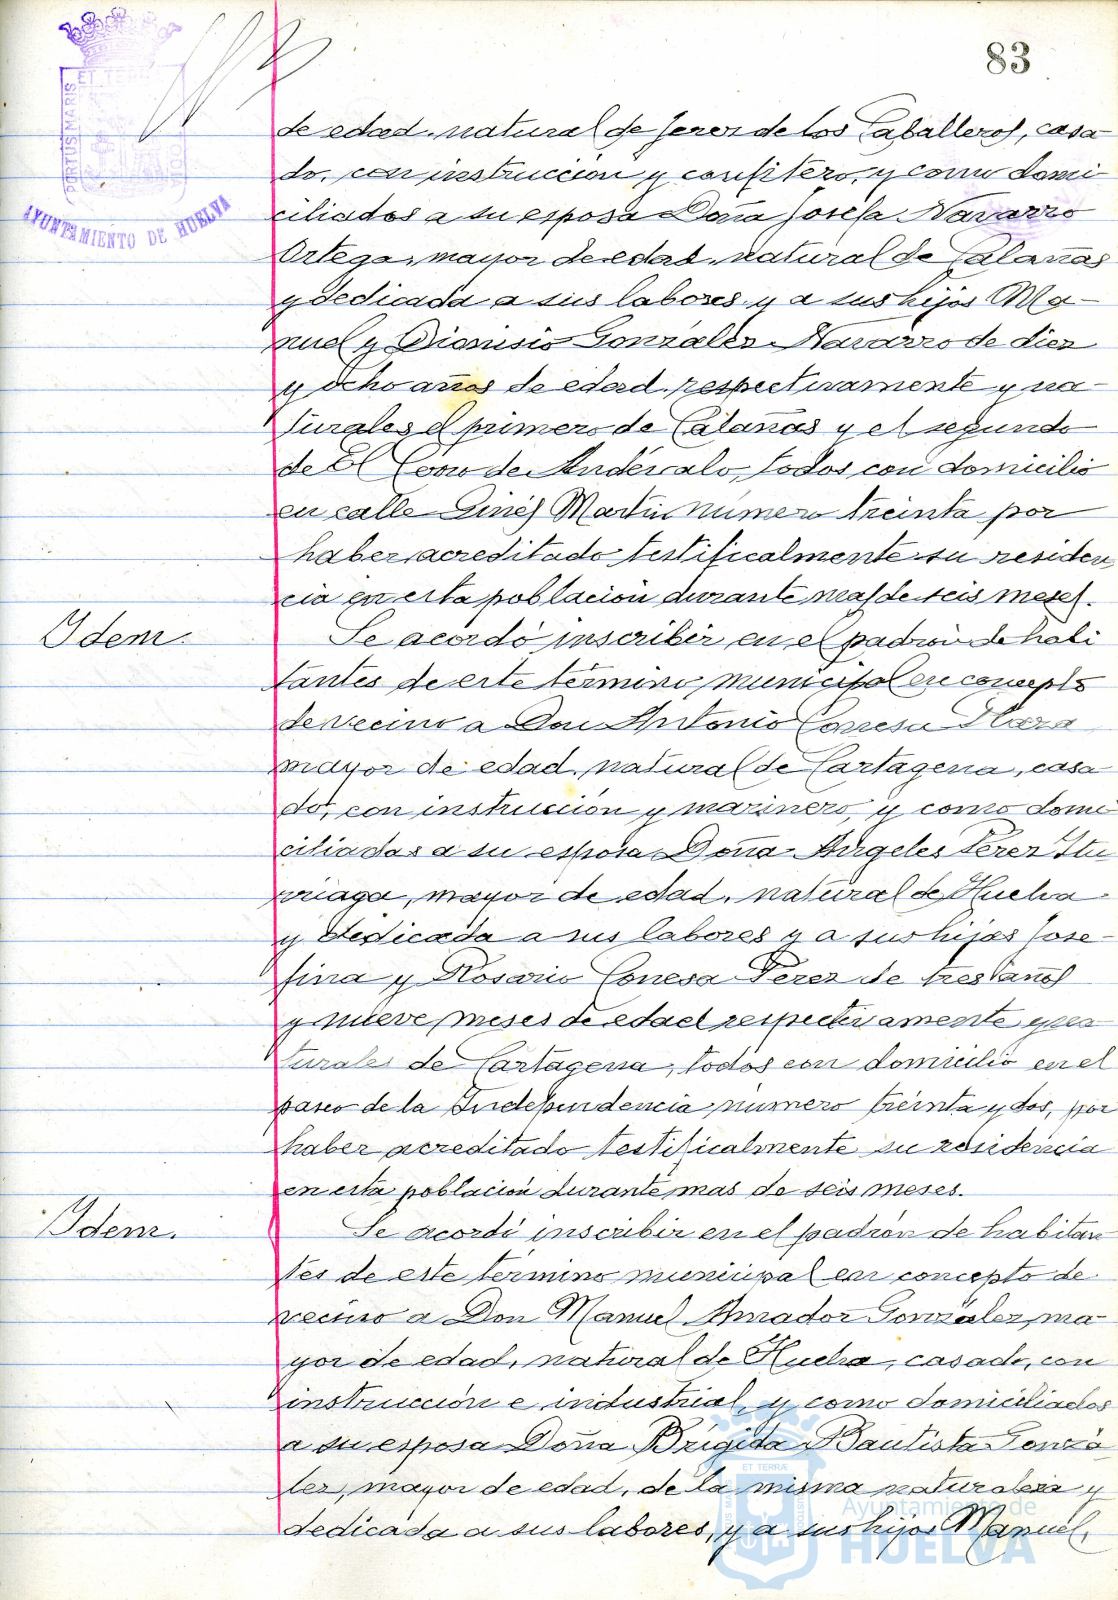 83
ET TERRÆ
PORTUS MARIS
AYUNTAMIENTO DE HUELVA
de edad, natural de Jerez de los Caballeros, casa-
do, con instrucción y confitero, y como domi
ciliados a su esposa Doña Josefa Navarro
Ortega, mayor de edad, natural de Calañas
y dedicada a sus labores y a sus hijos Ma-
nuel y Dionisio González Navarro de diez
y ocho años de edad respectivamente y na-
turales el primero de Calañas y el segundo
de El Cerro de Andévalo, todos con domicilio
en calle Ginés Martín número treinta por
haber acreditado testificalmente su residen
cia en esta población durante mas de seis meses.
Idem.
Se acordó inscribir en el padrón de habi
tantes de este término municipal en concepto
de vecino a Don Antonio Conesa
mayor de edad, natural de Cartagena, casa
do, con instrucción y marinero, y como domi
ciliadas a su esposa Doña Angeles Pérez Itu
rriaga, mayor de edad, natural de Huelva
y dedicada a sus labores y a sus hijas Jose-
fina y Rosario Conesa Pérez de tres años
y nueve meses de edad respectivamente y na
turales de Cartagena, todos con domicilio en el
paseo de la Independencia número treinta y dos, por
haber acreditado testificalmente su residencia
en esta población durante mas de seis meses.
Idem.
Se acordó inscribir en el padrón de habitan
tes de este término municipal en concepto de
vecino a Don Manuel Amador González, ma-
yor de edad, natural de Huelva, casado, con
instrucción e industrial, y como domiciliados
a su esposa Doña Brígida Bautista Gonzá-
lez, mayor de edad, de la misma naturaleza y
dedicada a sus labores, y a sus hijos Manuel,
Ayuntamiento de
HUELVA